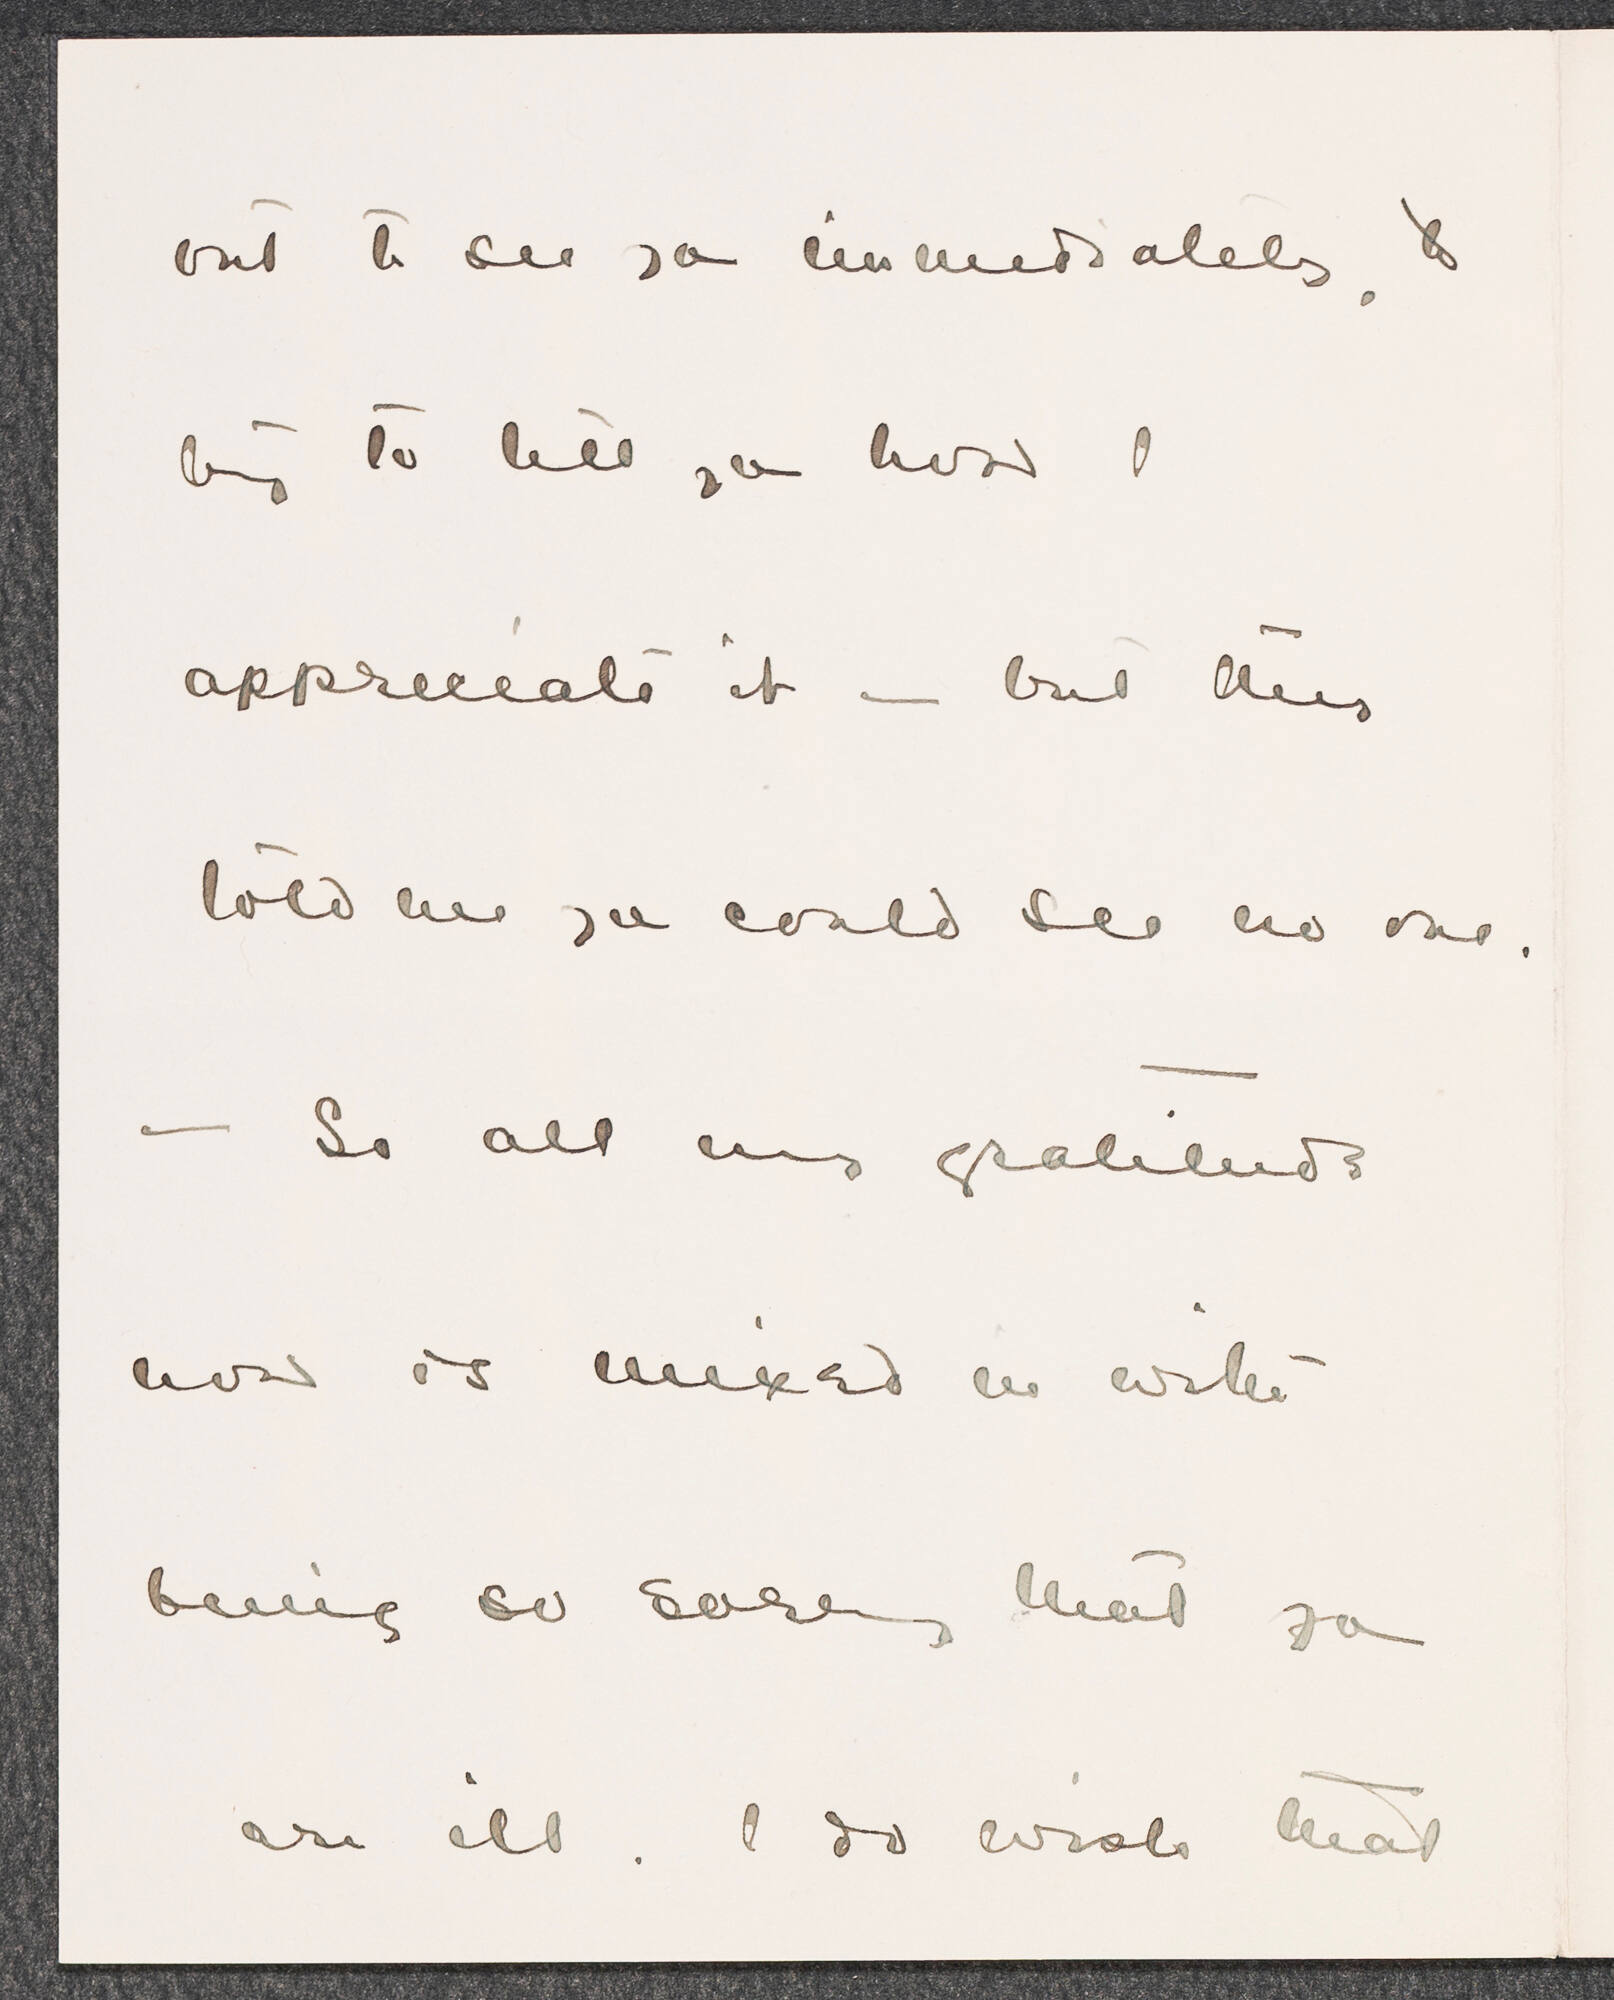 out to see you immediately, to
try to tell you how I
appreciate it — but they
told me you could see no one.
— So all my gratitude
now is mixed in with
being so sorry that you
are ill. I do wish that